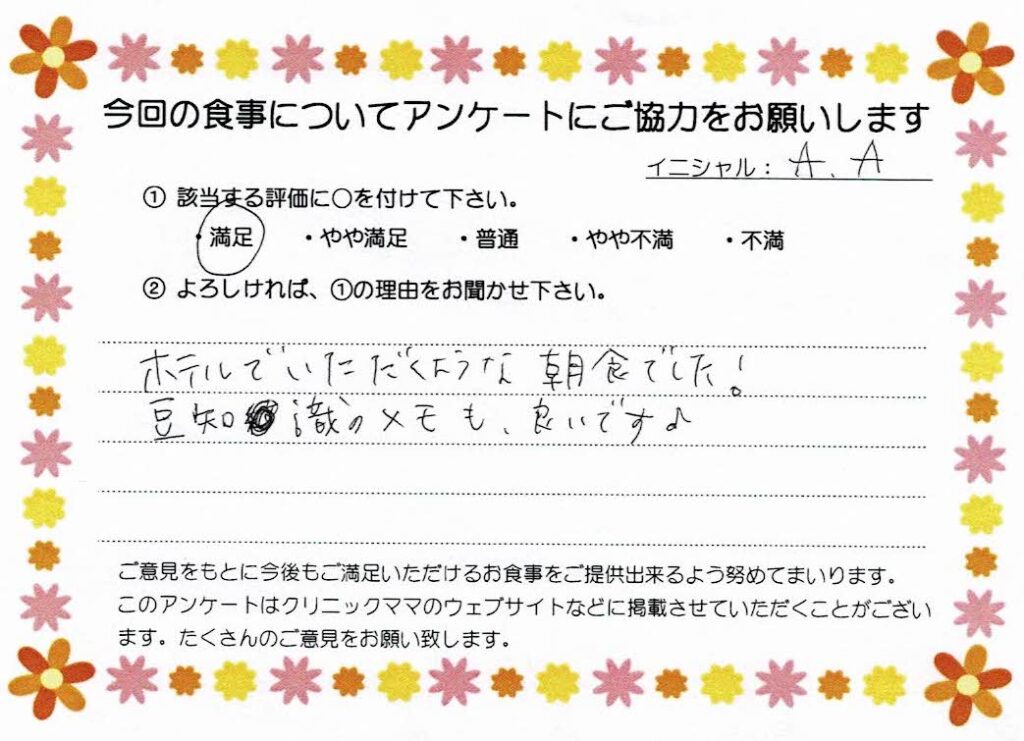 今回の食事についてアンケートにご協力をお願いします
イニシャル： A. A
① 該当する評価に○を付けて下さい。
・満足 ・やや満足 ・普通 ・やや不満 ・不満
② よろしければ、①の理由をお聞かせ下さい。
ホテルでいただくような 朝食でした!
豆知識のメモも、良いです♪
ご意見をもとに今後もご満足いただけるお食事をご提供出来るよう努めてまいります。
このアンケートはクリニックママのウェブサイトなどに掲載させていただくことがござい
ます。たくさんのご意見をお願い致します。